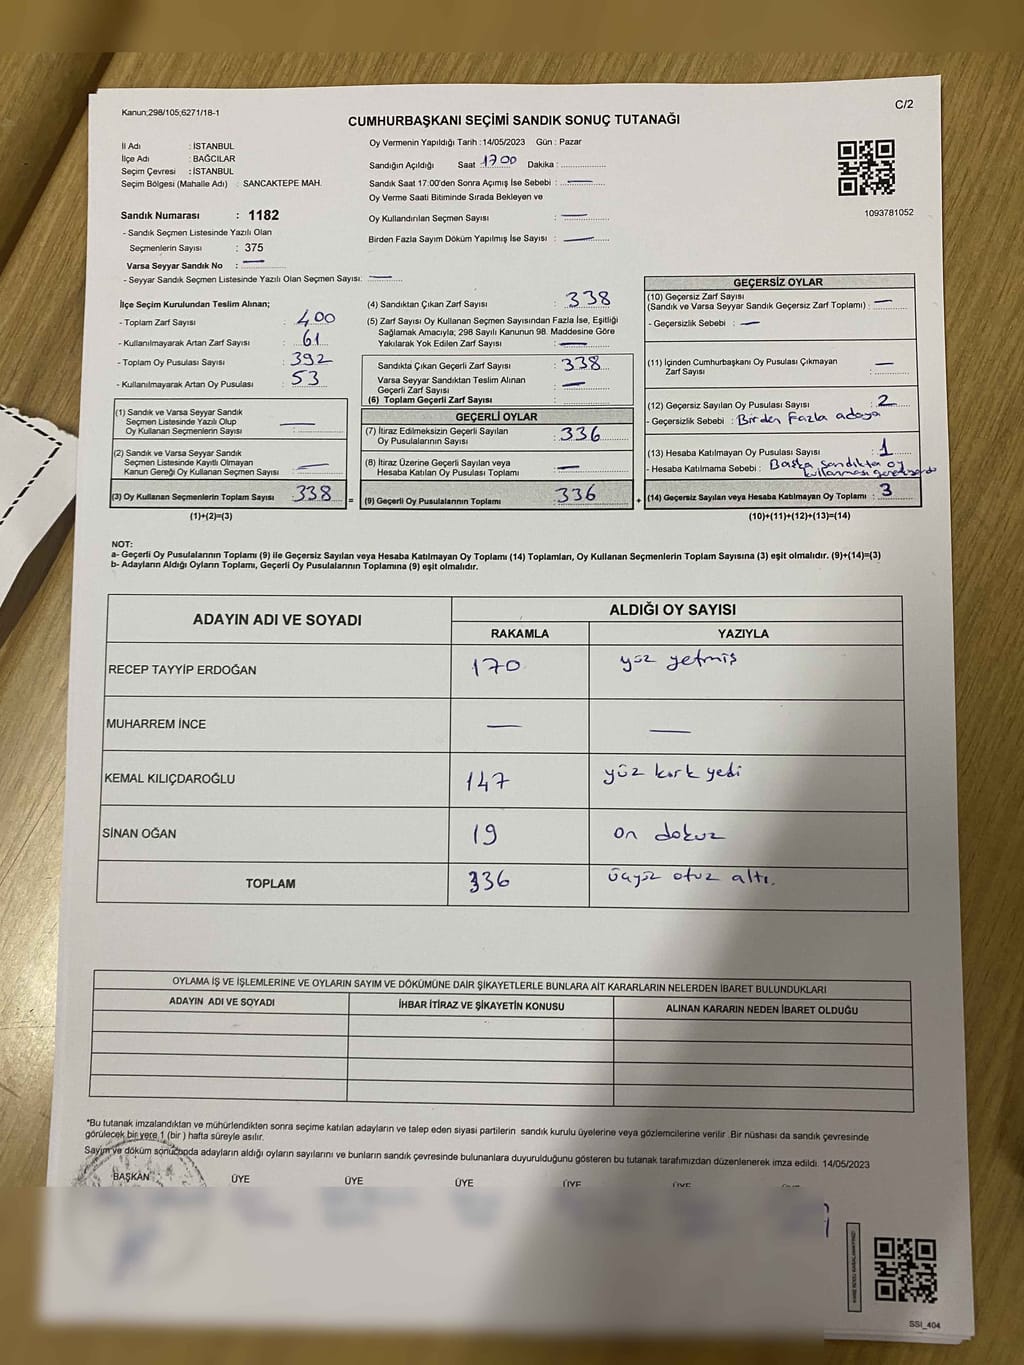 Kanun;298/105;6271/18-1
C/2
CUMHURBAŞKANI SEÇİMİ SANDIK SONUÇ TUTANAĞI
İl Adı : İSTANBUL
İlçe Adı : BAĞCILAR
Seçim Çevresi : İSTANBUL
Seçim Bölgesi (Mahalle Adı) : SANCAKTEPE MAH.
Sandık Numarası : 1182
- Sandık Seçmen Listesinde Yazılı Olan
Seçmenlerin Sayısı : 375
Varsa Seyyar Sandık No : —
- Seyyar Sandık Seçmen Listesinde Yazılı Olan Seçmen Sayısı: —
Oy Vermenin Yapıldığı Tarih :14/05/2023 Gün : Pazar
Sandığın Açıldığı Saat : 1700 Dakika :
Sandık Saat 17:00'den Sonra Açımış İse Sebebi : —
Oy Verme Saati Bitiminde Sırada Bekleyen ve
Oy Kullandırılan Seçmen Sayısı : —
Birden Fazla Sayım Döküm Yapılmış İse Sayısı : —
1093781052
İlçe Seçim Kurulundan Teslim Alınan;
- Toplam Zarf Sayısı : 400
- Kullanılmayarak Artan Zarf Sayısı : 61
- Toplam Oy Pusulası Sayısı : 392
- Kullanılmayarak Artan Oy Pusulası : 53
(1) Sandık ve Varsa Seyyar Sandık
Seçmen Listesinde Yazılı Olup
Oy Kullanan Seçmenlerin Sayısı : —
(2) Sandık ve Varsa Seyyar Sandık
Seçmen Listesinde Kayıtlı Olmayan
Kanun Gereği Oy Kullanan Seçmen Sayısı : —
(3) Oy Kullanan Seçmenlerin Toplam Sayısı : 338
(1)+(2)=(3)
=
(4) Sandıktan Çıkan Zarf Sayısı : 338
(5) Zarf Sayısı Oy Kullanan Seçmen Sayısından Fazla İse, Eşitliği
Sağlamak Amacıyla; 298 Sayılı Kanunun 98. Maddesine Göre
Yakılarak Yok Edilen Zarf Sayısı : —
Sandıkta Çıkan Geçerli Zarf Sayısı : 338
Varsa Seyyar Sandıktan Teslim Alınan
Geçerli Zarf Sayısı : —
(6) Toplam Geçerli Zarf Sayısı :
GEÇERLİ OYLAR
(7) İtiraz Edilmeksizin Geçerli Sayılan
Oy Pusulalarının Sayısı : 336
(8) İtiraz Üzerine Geçerli Sayılan veya
Hesaba Katılan Oy Pusulası Toplamı : —
(9) Geçerli Oy Pusulalarının Toplamı : 336
+
GEÇERSİZ OYLAR
(10) Geçersiz Zarf Sayısı
(Sandık ve Varsa Seyyar Sandık Geçersiz Zarf Toplamı) : —
- Geçersizlik Sebebi : —
(11) İçinden Cumhurbaşkanı Oy Pusulası Çıkmayan
Zarf Sayısı : —
(12) Geçersiz Sayılan Oy Pusulası Sayısı : 2
- Geçersizlik Sebebi : Birden Fazla adaya
(13) Hesaba Katılmayan Oy Pusulası Sayısı : 1
- Hesaba Katılmama Sebebi : Başka sandıkta oy
kullanması gerekiyordu
(14) Geçersiz Sayılan veya Hesaba Katılmayan Oy Toplamı : 3
(10)+(11)+(12)+(13)=(14)
NOT:
a- Geçerli Oy Pusulalarının Toplamı (9) ile Geçersiz Sayılan veya Hesaba Katılmayan Oy Toplamı (14) Toplamları, Oy Kullanan Seçmenlerin Toplam Sayısına (3) eşit olmalıdır. (9)+(14)=(3)
b- Adayların Aldığı Oyların Toplamı, Geçerli Oy Pusulalarının Toplamına (9) eşit olmalıdır.
ADAYIN ADI VE SOYADI
ALDIĞI OY SAYISI
RAKAMLA YAZIYLA
RECEP TAYYİP ERDOĞAN 170 yüz yetmiş
MUHARREM İNCE — —
KEMAL KILIÇDAROĞLU 147 yüz kırk yedi
SİNAN OĞAN 19 on dokuz
TOPLAM 336 üçyüz otuz altı.
OYLAMA İŞ VE İŞLEMLERİNE VE OYLARIN SAYIM VE DÖKÜMÜNE DAİR ŞİKAYETLERLE BUNLARA AİT KARARLARIN NELERDEN İBARET BULUNDUKLARI
ADAYIN ADI VE SOYADI İHBAR İTİRAZ VE ŞİKAYETİN KONUSU ALINAN KARARIN NEDEN İBARET OLDUĞU
*Bu tutanak imzalandıktan ve mühürlendikten sonra seçime katılan adayların ve talep eden siyasi partilerin sandık kurulu üyelerine veya gözlemcilerine verilir. Bir nüshası da sandık çevresinde
görülecek bir yere 1 (bir ) hafta süreyle asılır.
Sayım ve döküm sonucunda adayların aldığı oyların sayılarını ve bunların sandık çevresinde bulunanlara duyurulduğunu gösteren bu tutanak tarafımızdan düzenlenerek imza edildi. 14/05/2023
BAŞKAN ÜYE ÜYE ÜYE ÜYE ÜYE
SSI_404